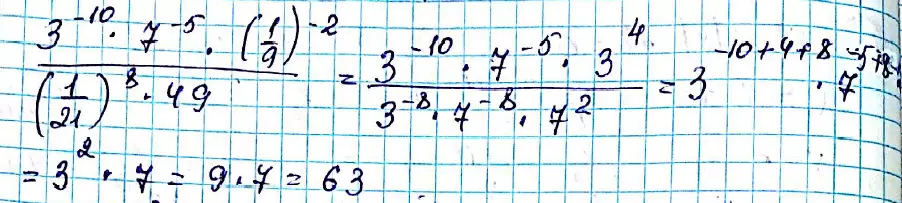 \frac{3^{-10} \cdot 7^{-5} \cdot \left(\frac{1}{9}\right)^{-2}}{\left(\frac{1}{21}\right)^{8} \cdot 49} = \frac{3^{-10} \cdot 7^{-5} \cdot 3^{4}}{3^{-8} \cdot 7^{-8} \cdot 7^{2}} = 3^{-10+4+8} \cdot 7^{-5+8-}
= 3^{2} \cdot 7 = 9 \cdot 7 = 63